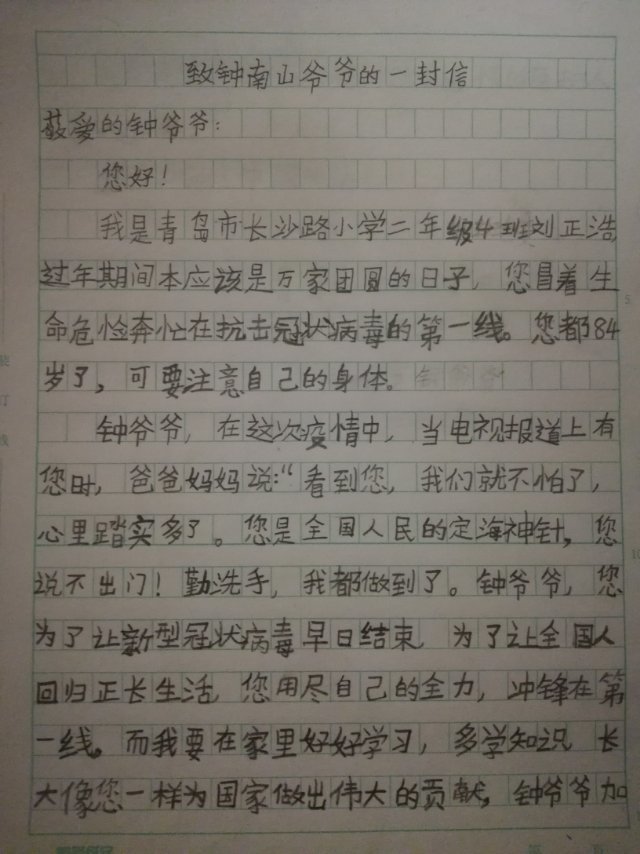 致钟南山爷爷的一封信
敬爱的钟爷爷：
您好！
我是青岛市长沙路小学二年级4班刘正浩，
过年期间本应该是万家团圆的日子，您冒着生
命危险奔忙在抗击冠状病毒的第一线。您都84
岁了，可要注意自己的身体。
钟爷爷，在这次疫情中，当电视报道上有
您时，爸爸妈妈说：“看到您，我们就不怕了，
心里踏实多了。您是全国人民的定海神针，您
说不出门！勤洗手，我都做到了。钟爷爷，您
为了让新型冠状病毒早日结束，为了让全国人
回归正长生活，您用尽自己的全力，冲锋在第
一线。而我要在家里好好学习，多学知识，长
大像您一样为国家做出伟大的贡献，钟爷爷加